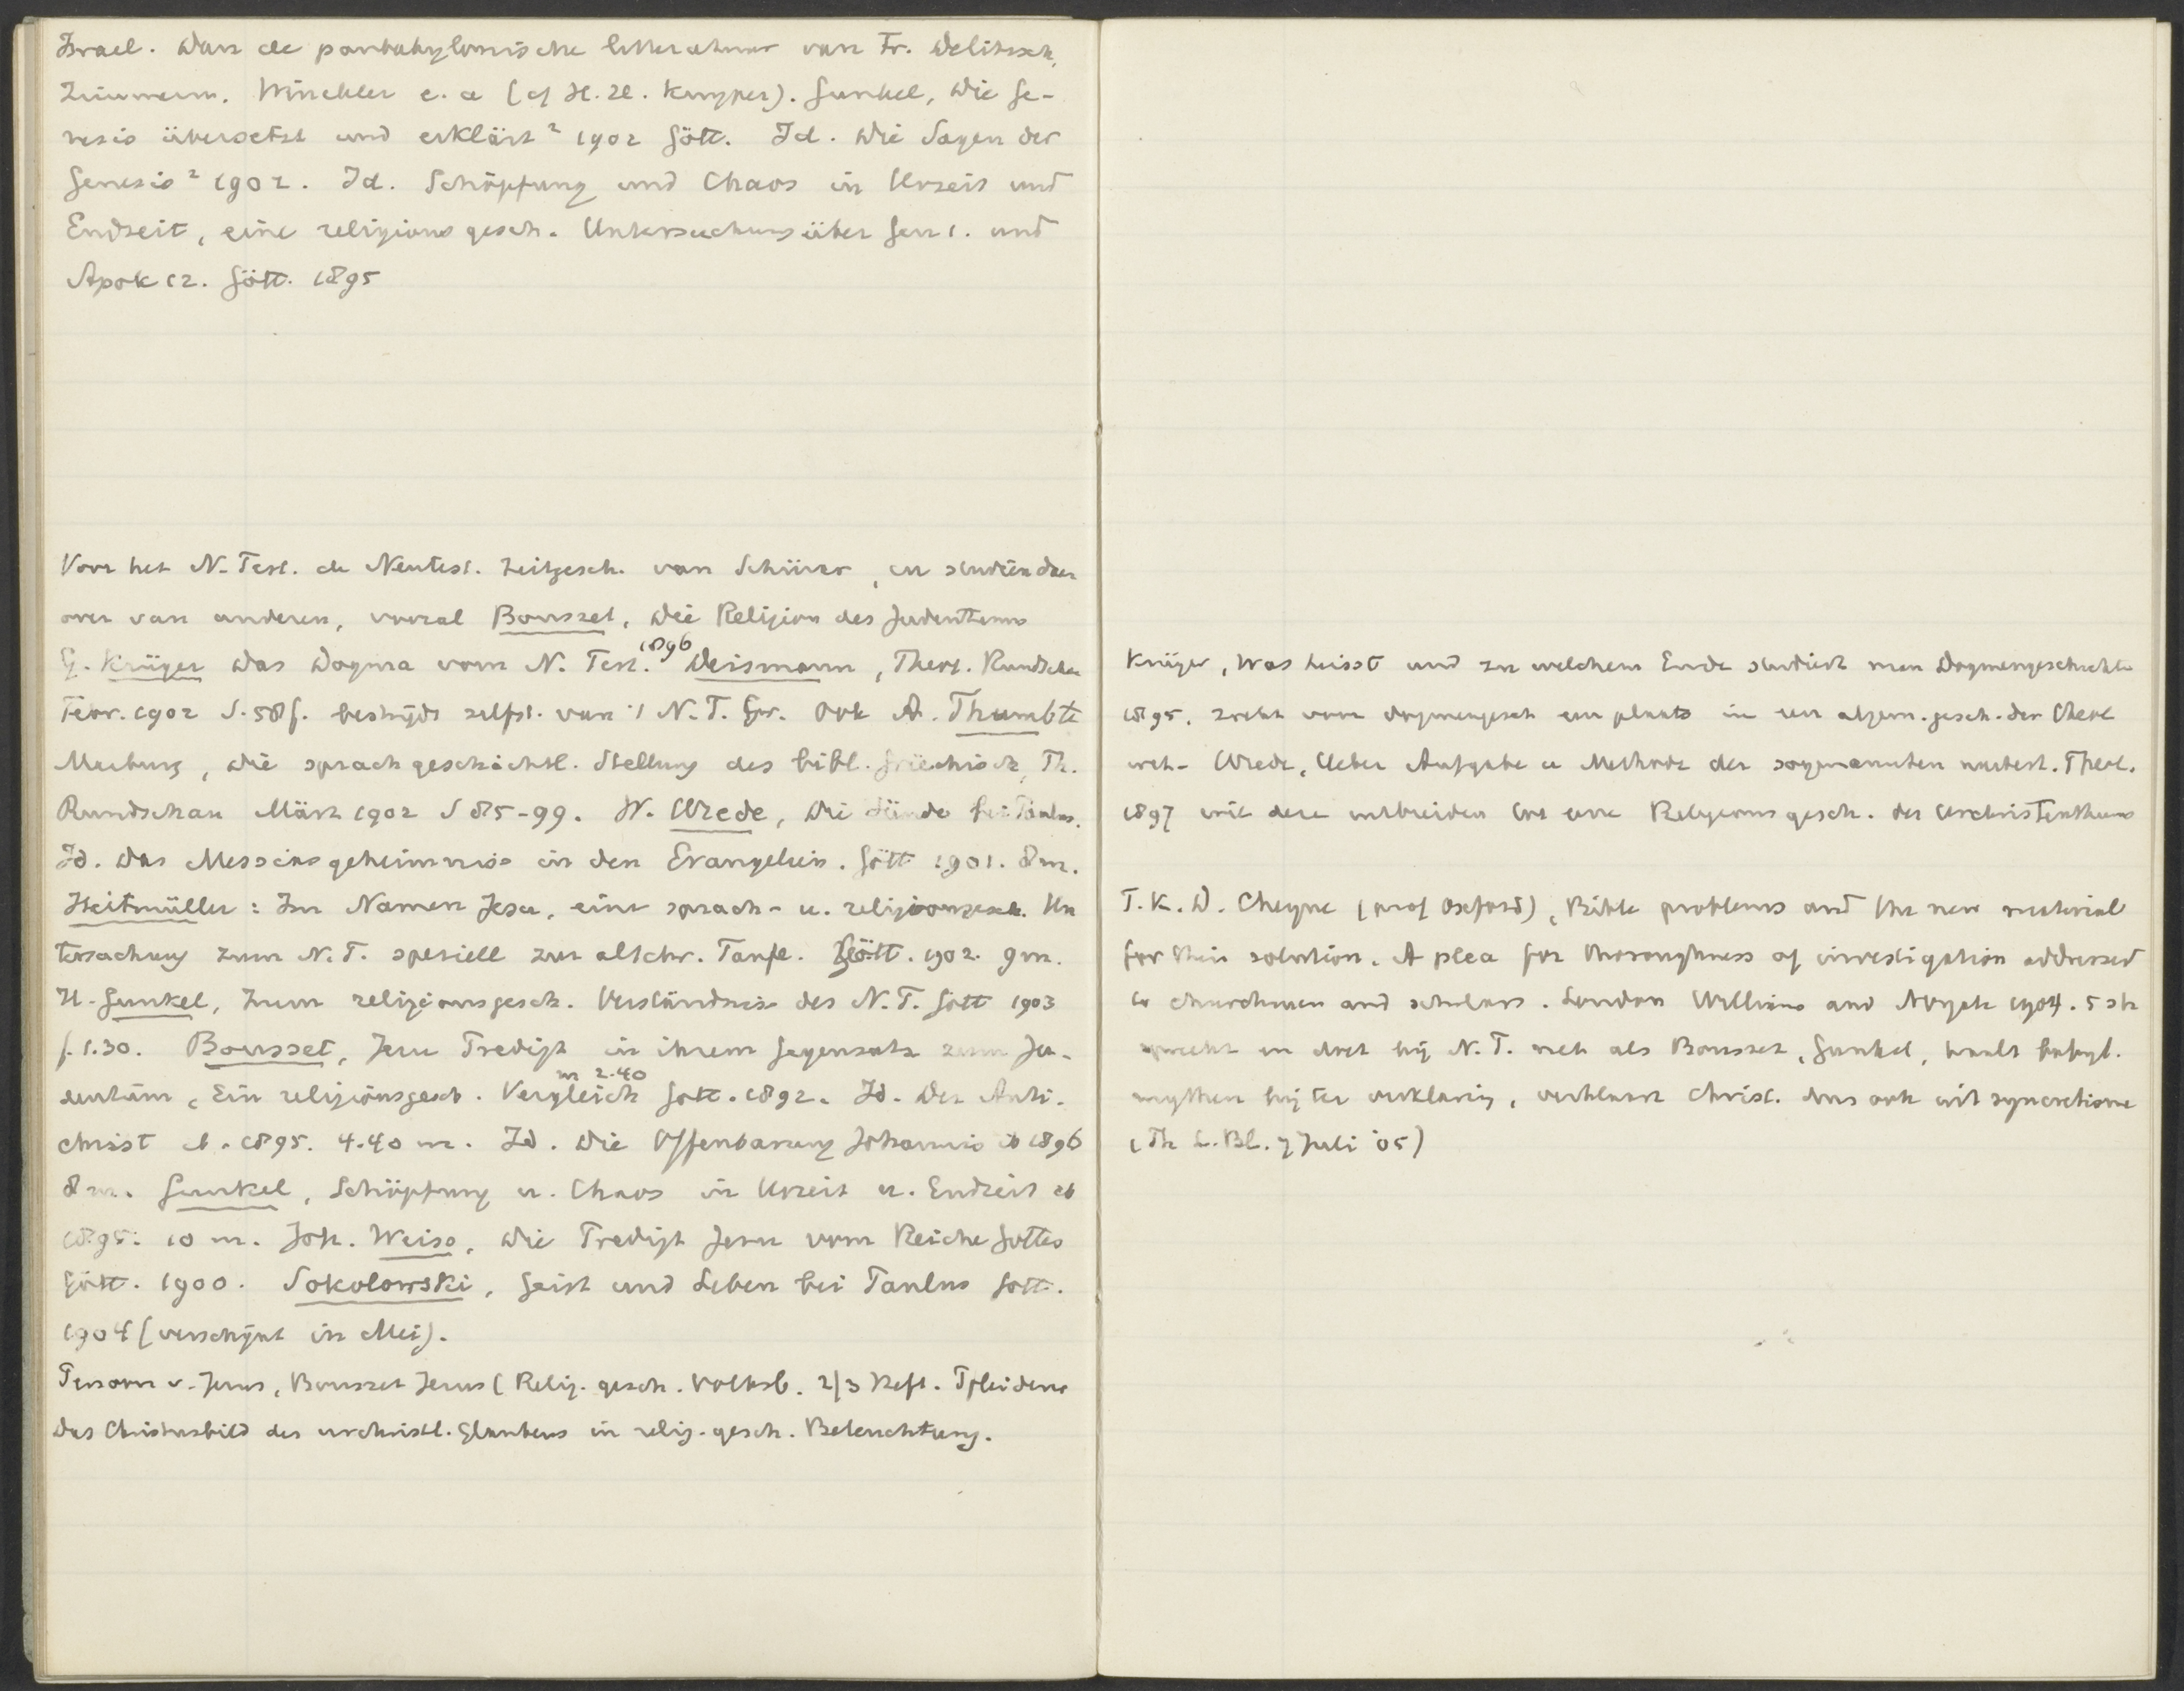 Israel. Dan de panbabylonische litteratuur van Fr. Delitzsch,
Zimmern. Winckler e. a (cf H. H. Kuyper). Gunkel, Die Ge-
nesis übersetzt und erklärt ² 1902 Gött. Id. Die Sagen der
Genesis ² 1902. Id. Schöpfung und Chaos in Urzeit und
Endzeit, eine religions gesch. Untersuchung über Gen 1. und
Apok 12. Gött. 1895
Voor het N. Test. de Neutest. Zeitgesch. van Schürer, en studiën daar
over van anderen, vooral Bousset, Die Religion des Judenthums
G. Krüger Das Dogma vom N. Test. 1896 Deismann, Theol. Rundschau
Febr. 1902 S. 58 f. bestrijdt zelfst. van 't N. T. Gr. Ook A. Thumb te
Marburg, die sprach geschichtl. Stellung des bibl. Griechisch, Th.
Rundschau März 1902 S 85-99. W. Wrede, Die Sünde bei Paulus.
Id. Das Messias geheimniss in den Evangelien. Gött 1901. 8 m.
Heitmüller: Im Namen Jesu, eine sprach- u. religionsgesch. Un
tersuchung zum N. T. speziell zur altchr. Taufe. Gött. 1902. 9 m.
H. Gunkel, Zum religionsgesch. Verständniss des N. T. Gött 1903
f. 1.30. Bousset, Jesu Predigt in ihrem Gegensatz zum Ju-
dentum, Ein religionsgesch. Vergleich Gött. 1892. m 2.40 Id. Der Anti-
christ ib. 1895. 4.40 m. Id. Die Offenbarung Johannis ib 1896
8 m. Gunkel, Schöpfung u. Chaos in Urzeit u. Endzeit ib
1895. 10 m. Joh. Weiss, Die Predigt Jesu vom Reiche Gottes
Gött. 1900. Sokolowski, Geist und Leben bei Paulus Gött.
1904 (verschijnt in Mei).
Persoon v. Jezus, Bousset Jesus (Relig. gesch. Volksb. 2/3 Heft. Pfleiderer
Das Christusbild des urchristl. Glaubens in relig. gesch. Beleuchtung.
Krüger, Was heisst und zu welchem Ende studiert man Dogmengeschichte
1895. zoekt voor dogmengesch een plaats in een algem. gesch. der theol
wet- Wrede, Ueber Aufgabe u Methode der sogenannten neutest. Theol.
1897 wil deze uitbreiden tot eene Religions gesch. des Urchristenthums
T. K. D. Cheyne (prof Oxford), Bible problems and the new material
for their solution. A plea for thoroughness of investigation addressed
to churchmen and scholars. London Williams and Norgate 1904. 5 sh
in N. T. net als Bousset, Gunkel, haalt babyl.
mythen bij ter verklaring, verklaart Christ. dus ook uit syncretisme
(Th L. Bl. 7 Juli '05)